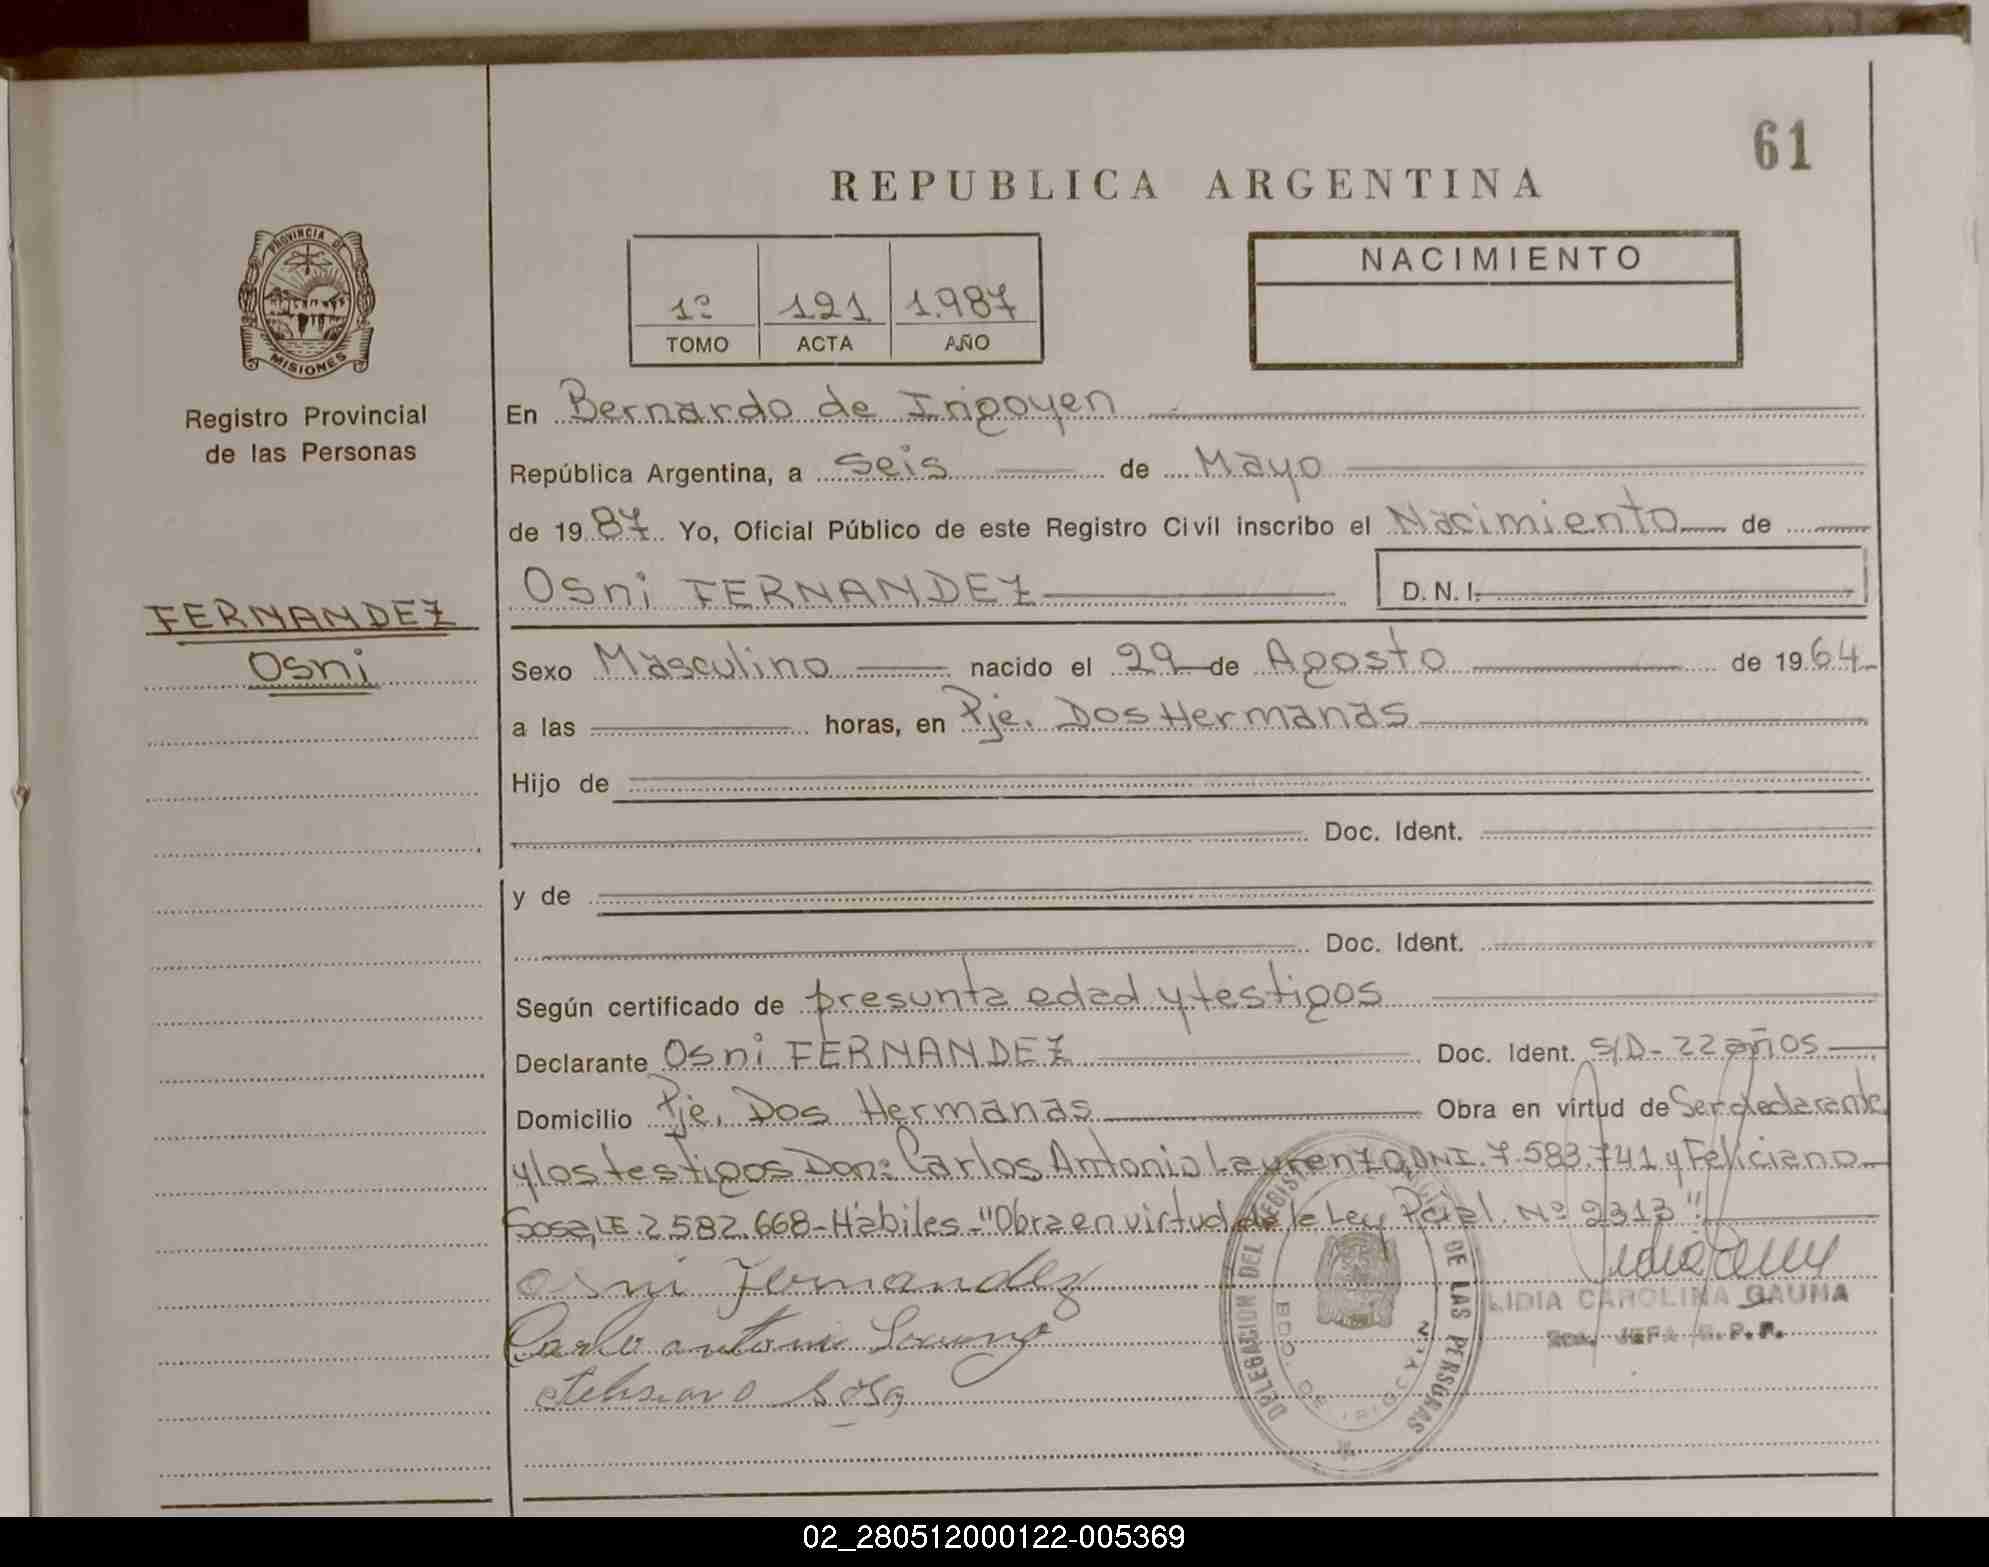 61
REPUBLICA ARGENTINA
PROVINCIA DE
MISIONES
Registro Provincial
de las Personas
1º 121 1.987
TOMO ACTA AÑO
NACIMIENTO
En Bernardo de Irigoyen
República Argentina, a Seis de Mayo
de 1987 Yo, Oficial Público de este Registro Civil inscribo el Nacimiento de
Osni FERNANDEZ D.N.I.
FERNANDEZ
Osni
Sexo Masculino nacido el 29 de Agosto de 1964
a las horas, en Pje. Dos Hermanas
Hijo de
Doc. Ident.
y de
Doc. Ident.
Según certificado de presunta edad y testigos
Declarante Osni FERNANDEZ Doc. Ident. S/D- 22 años
Domicilio Pje. Dos Hermanas Obra en virtud de Ser declarante
y los testigos Don: Carlos Antonio Laurenzo, DNI. 7.583.741 y Feliciano
Sosa, LE 2.582.668- Hábiles- "Obra en virtud de la Ley Pcial. Nº 2313"
Osni Fernandez
Carlo antoni
Feliciano Sosa
DELEGACION DEL REGISTRO DE LAS PERSONAS
BDO. DE IRIGOYEN
LIDIA CAROLINA GAUNA
JEFA R.P.P.
02_280512000122-005369